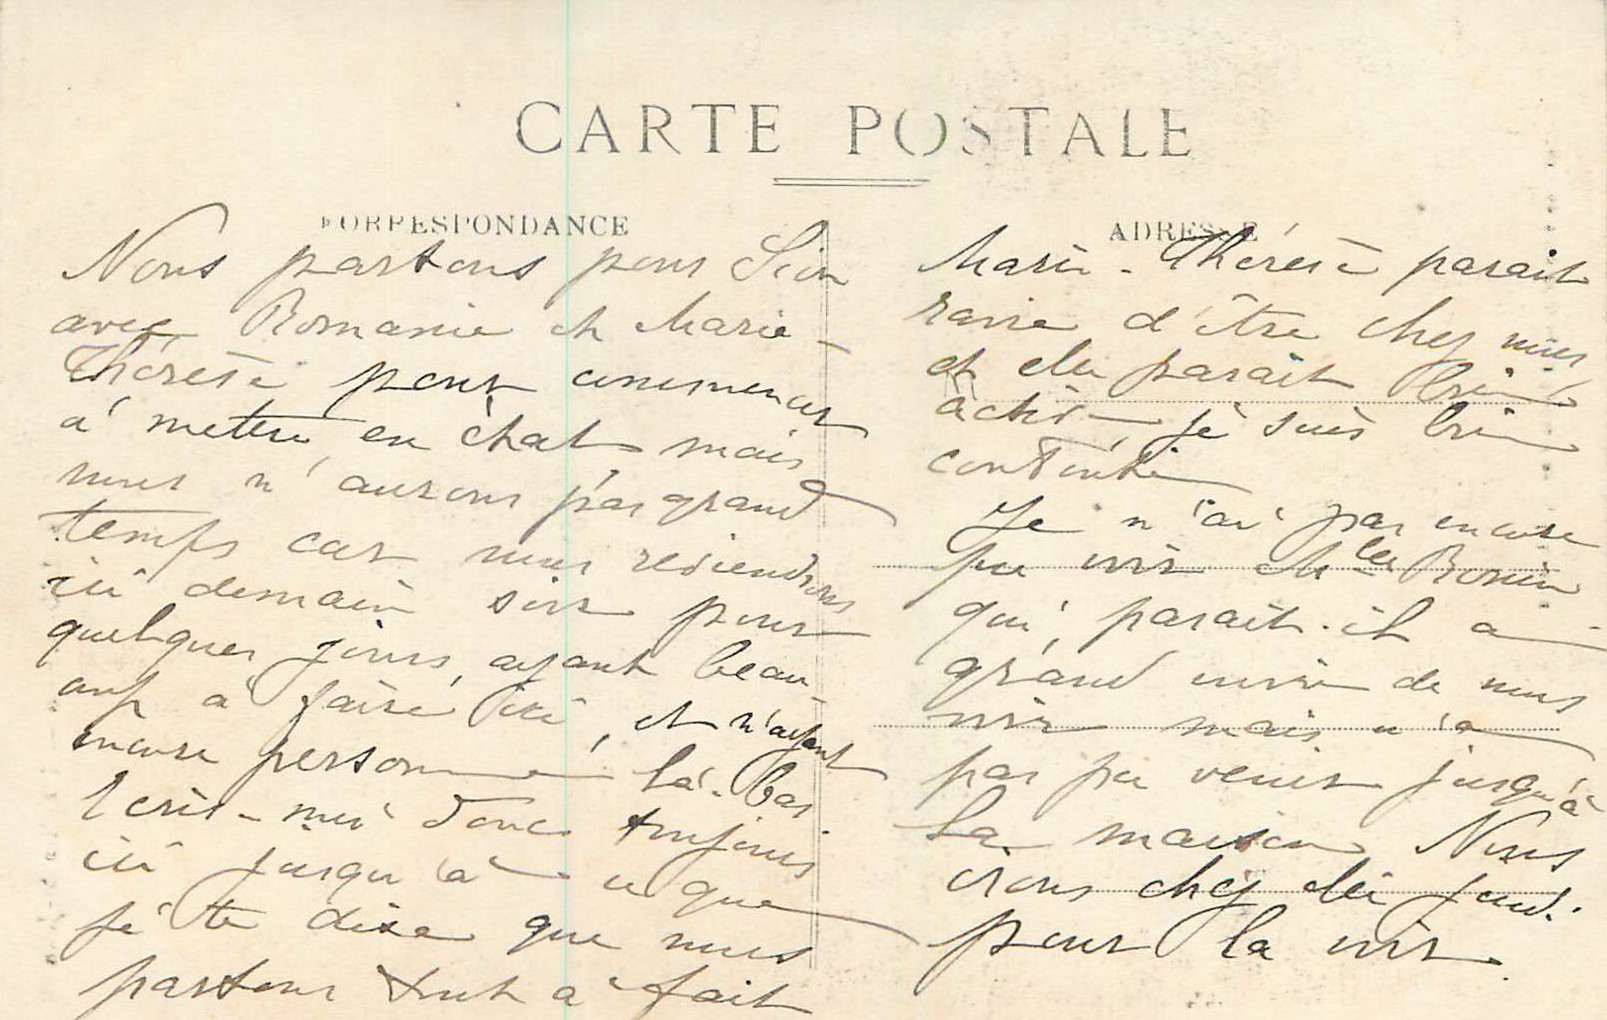 CARTE POSTALE
CORRESPONDANCE
Nous partons pour Sion
avec Romanie et Marie-
Thérèse pour commencer
à mettre en état mais
nous n'aurons pas grand
temps car nous reviendrons
ici demain soir pour
quelques jours, ayant beau-
coup à faire ici, et n'ayant
encore personne là-bas
Ecris-moi donc toujours
ici jusqu'à ce que
je te dise que nous
partons tout à fait
ADRESSE
Marie-Thérèse parait
ravie d'être chez nous
et elle parait bien
active je suis bien
contente
Je n'ai pas encore
pu voir Mlle
qui, parait-il a
grand envie de nous
voir mais n'a
pas pu venir jusqu'à
la maison Nous
irons chez elle jeudi
pour la voir.